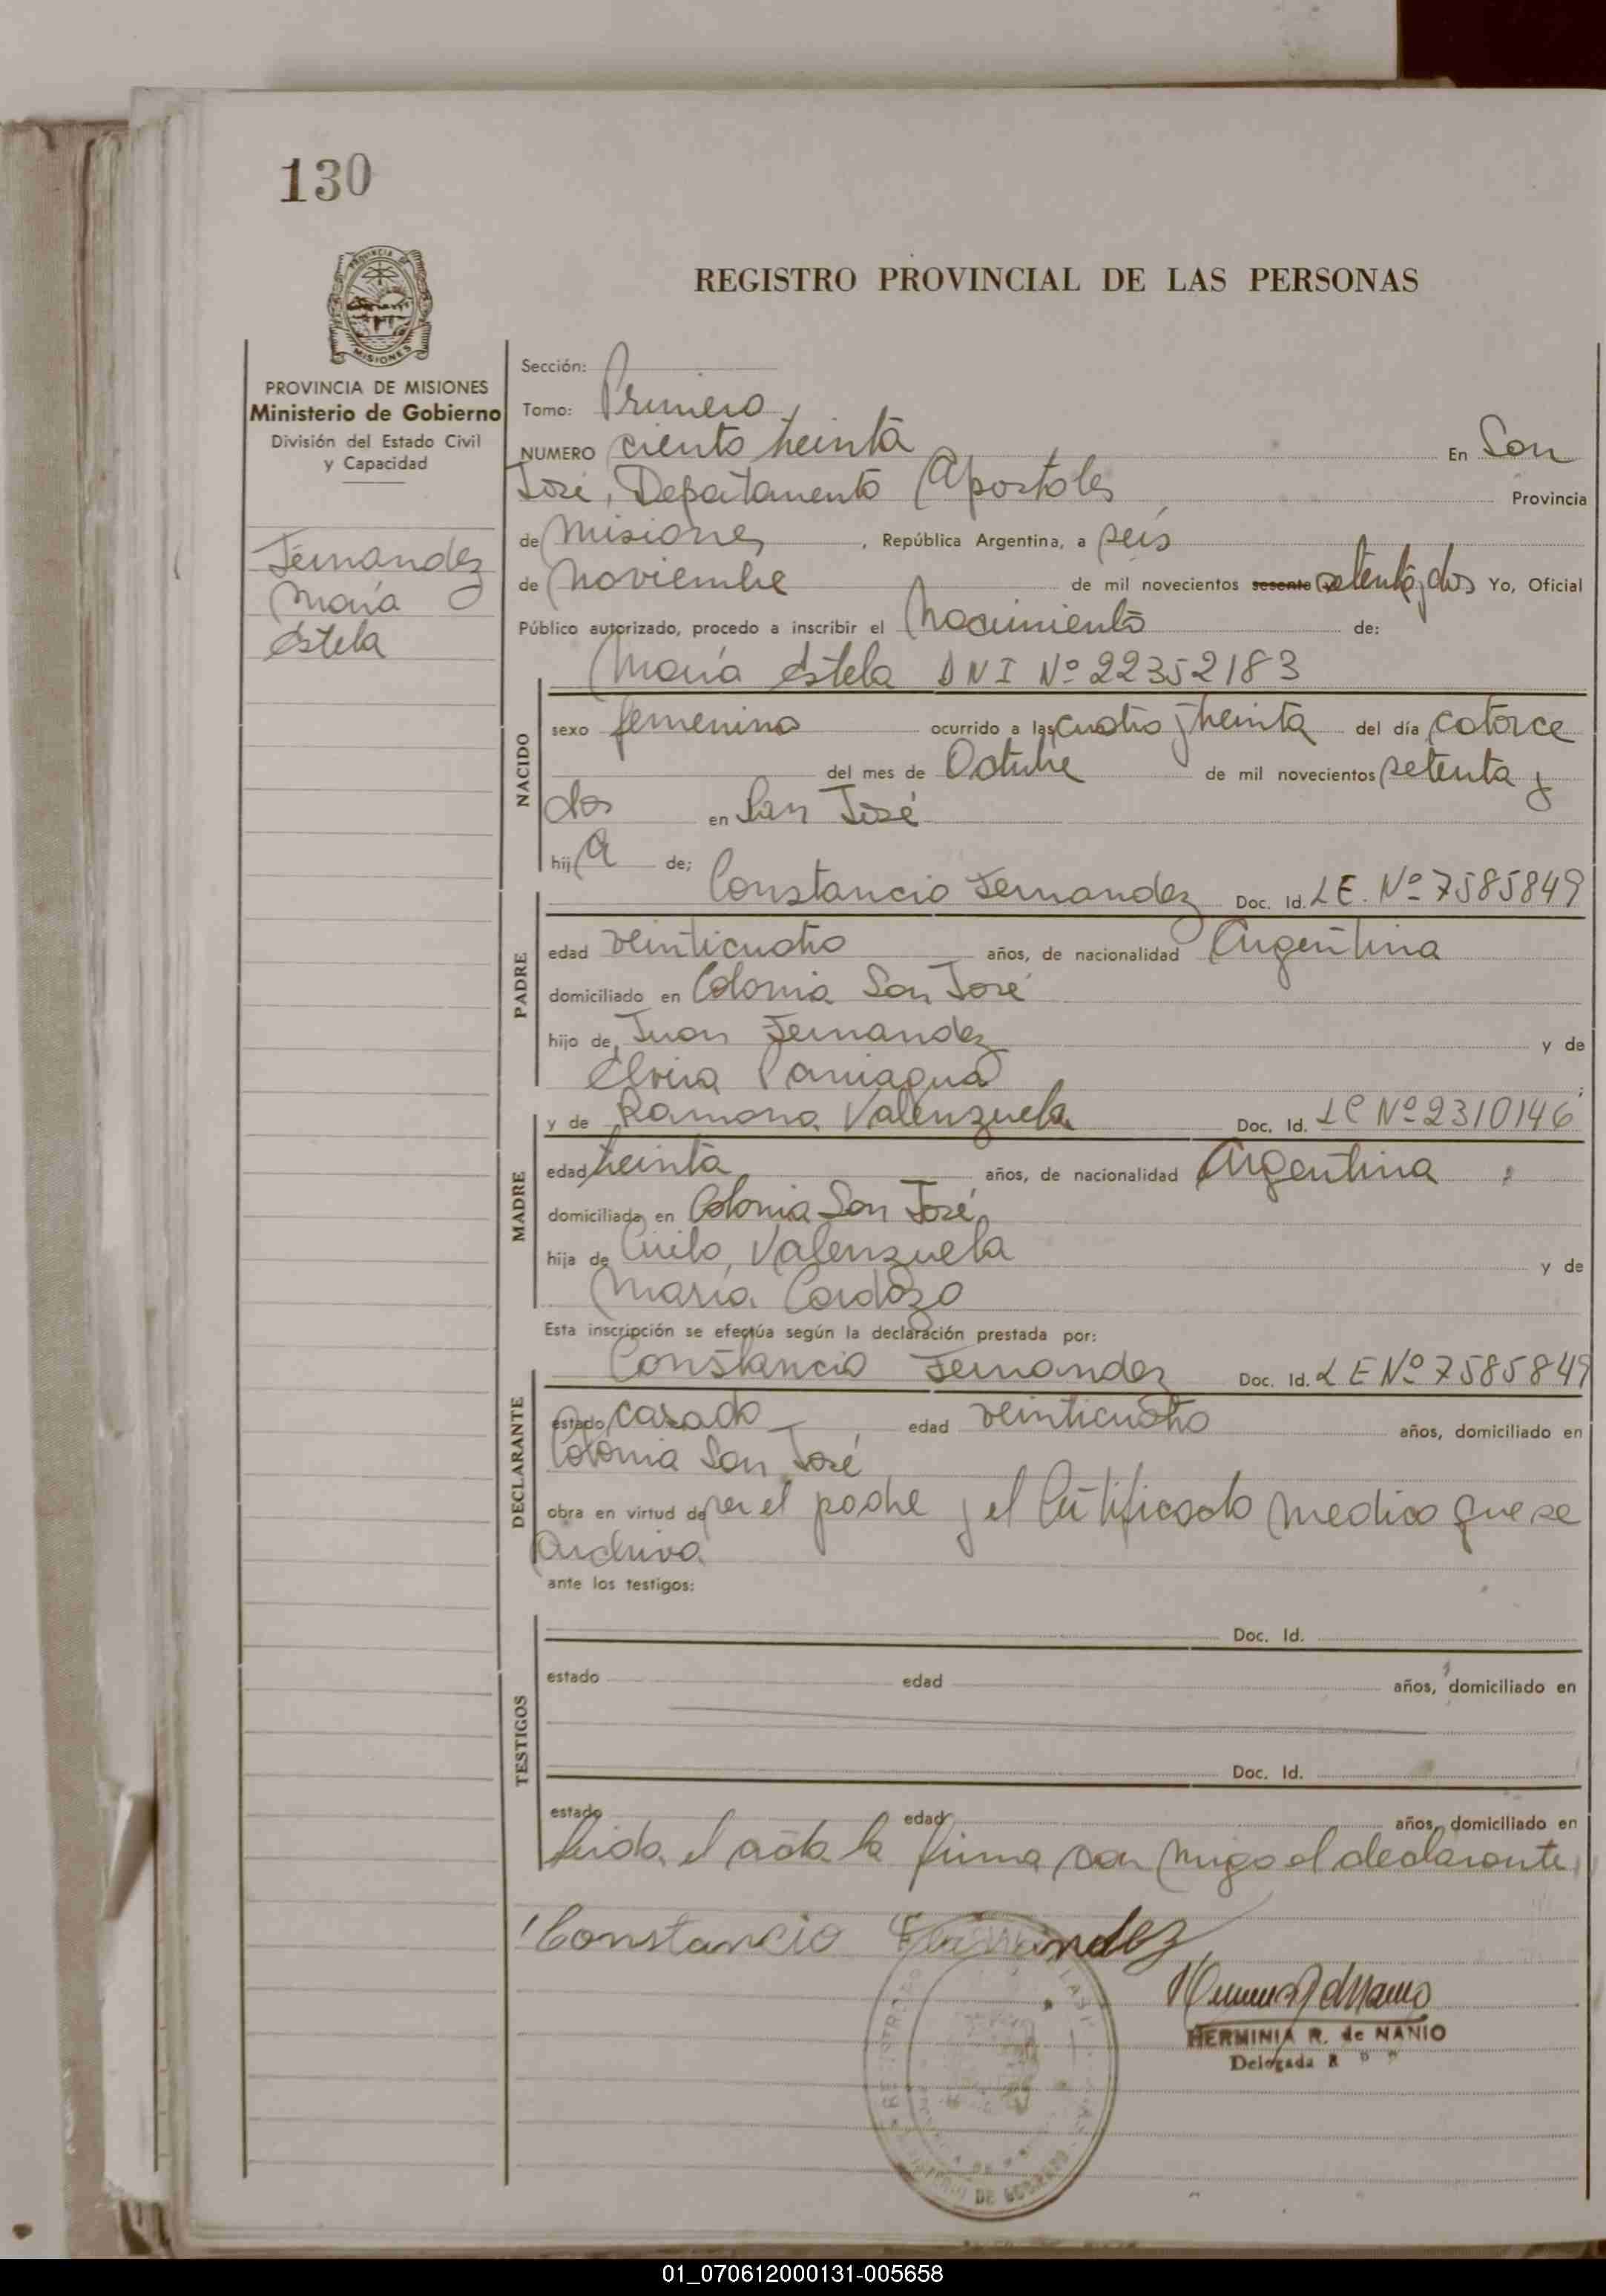 130
REGISTRO PROVINCIAL DE LAS PERSONAS
PROVINCIA DE
MISIONES
PROVINCIA DE MISIONES
Ministerio de Gobierno
División del Estado Civil
y Capacidad
Fernandez
María
Estela
Sección:
Tomo: Primero
NUMERO ciento treinta En San
José, Departamento Apostoles Provincia
de Misiones, República Argentina, a seis
de Noviembre de mil novecientos sesenta setenta y dos Yo, Oficial
Público autorizado, procedo a inscribir el Nacimiento de:
María Estela DNI Nº 22352183
NACIDO
sexo femenino ocurrido a las cuatro y treinta del día catorce
del mes de Octubre de mil novecientos setenta y
dos en San José
hij a de;
PADRE
Constancio Fernandez Doc. Id. LE. Nº 7585849
edad veinticuatro años, de nacionalidad Argentina
domiciliado en Colonia San José
hijo de Juan Fernandez y de
Elvira Paniagua ;
MADRE
y de Ramona Valenzuela Doc. Id. LC Nº 2310146
edad treinta años, de nacionalidad Argentina
domiciliada en Colonia San José
hija de Cirilo Valenzuela y de
María Cardozo
Esta inscripción se efectúa según la declaración prestada por:
DECLARANTE
Constancio Fernandez Doc. Id. LE Nº 7585849
estado casado edad veinticuatro años, domiciliado en
Colonia San José
obra en virtud de ser el padre y el Certificado medico que se
Archiva
ante los testigos:
TESTIGOS
Doc. Id.
estado edad años, domiciliado en
Doc. Id.
estado edad años, domiciliado en
leida el acta la firma con migo el declarante
Constancio Fernandez
HERMINIA R. de NANIO
Delegada R
DE GOBIERNO
01_070612000131-005658